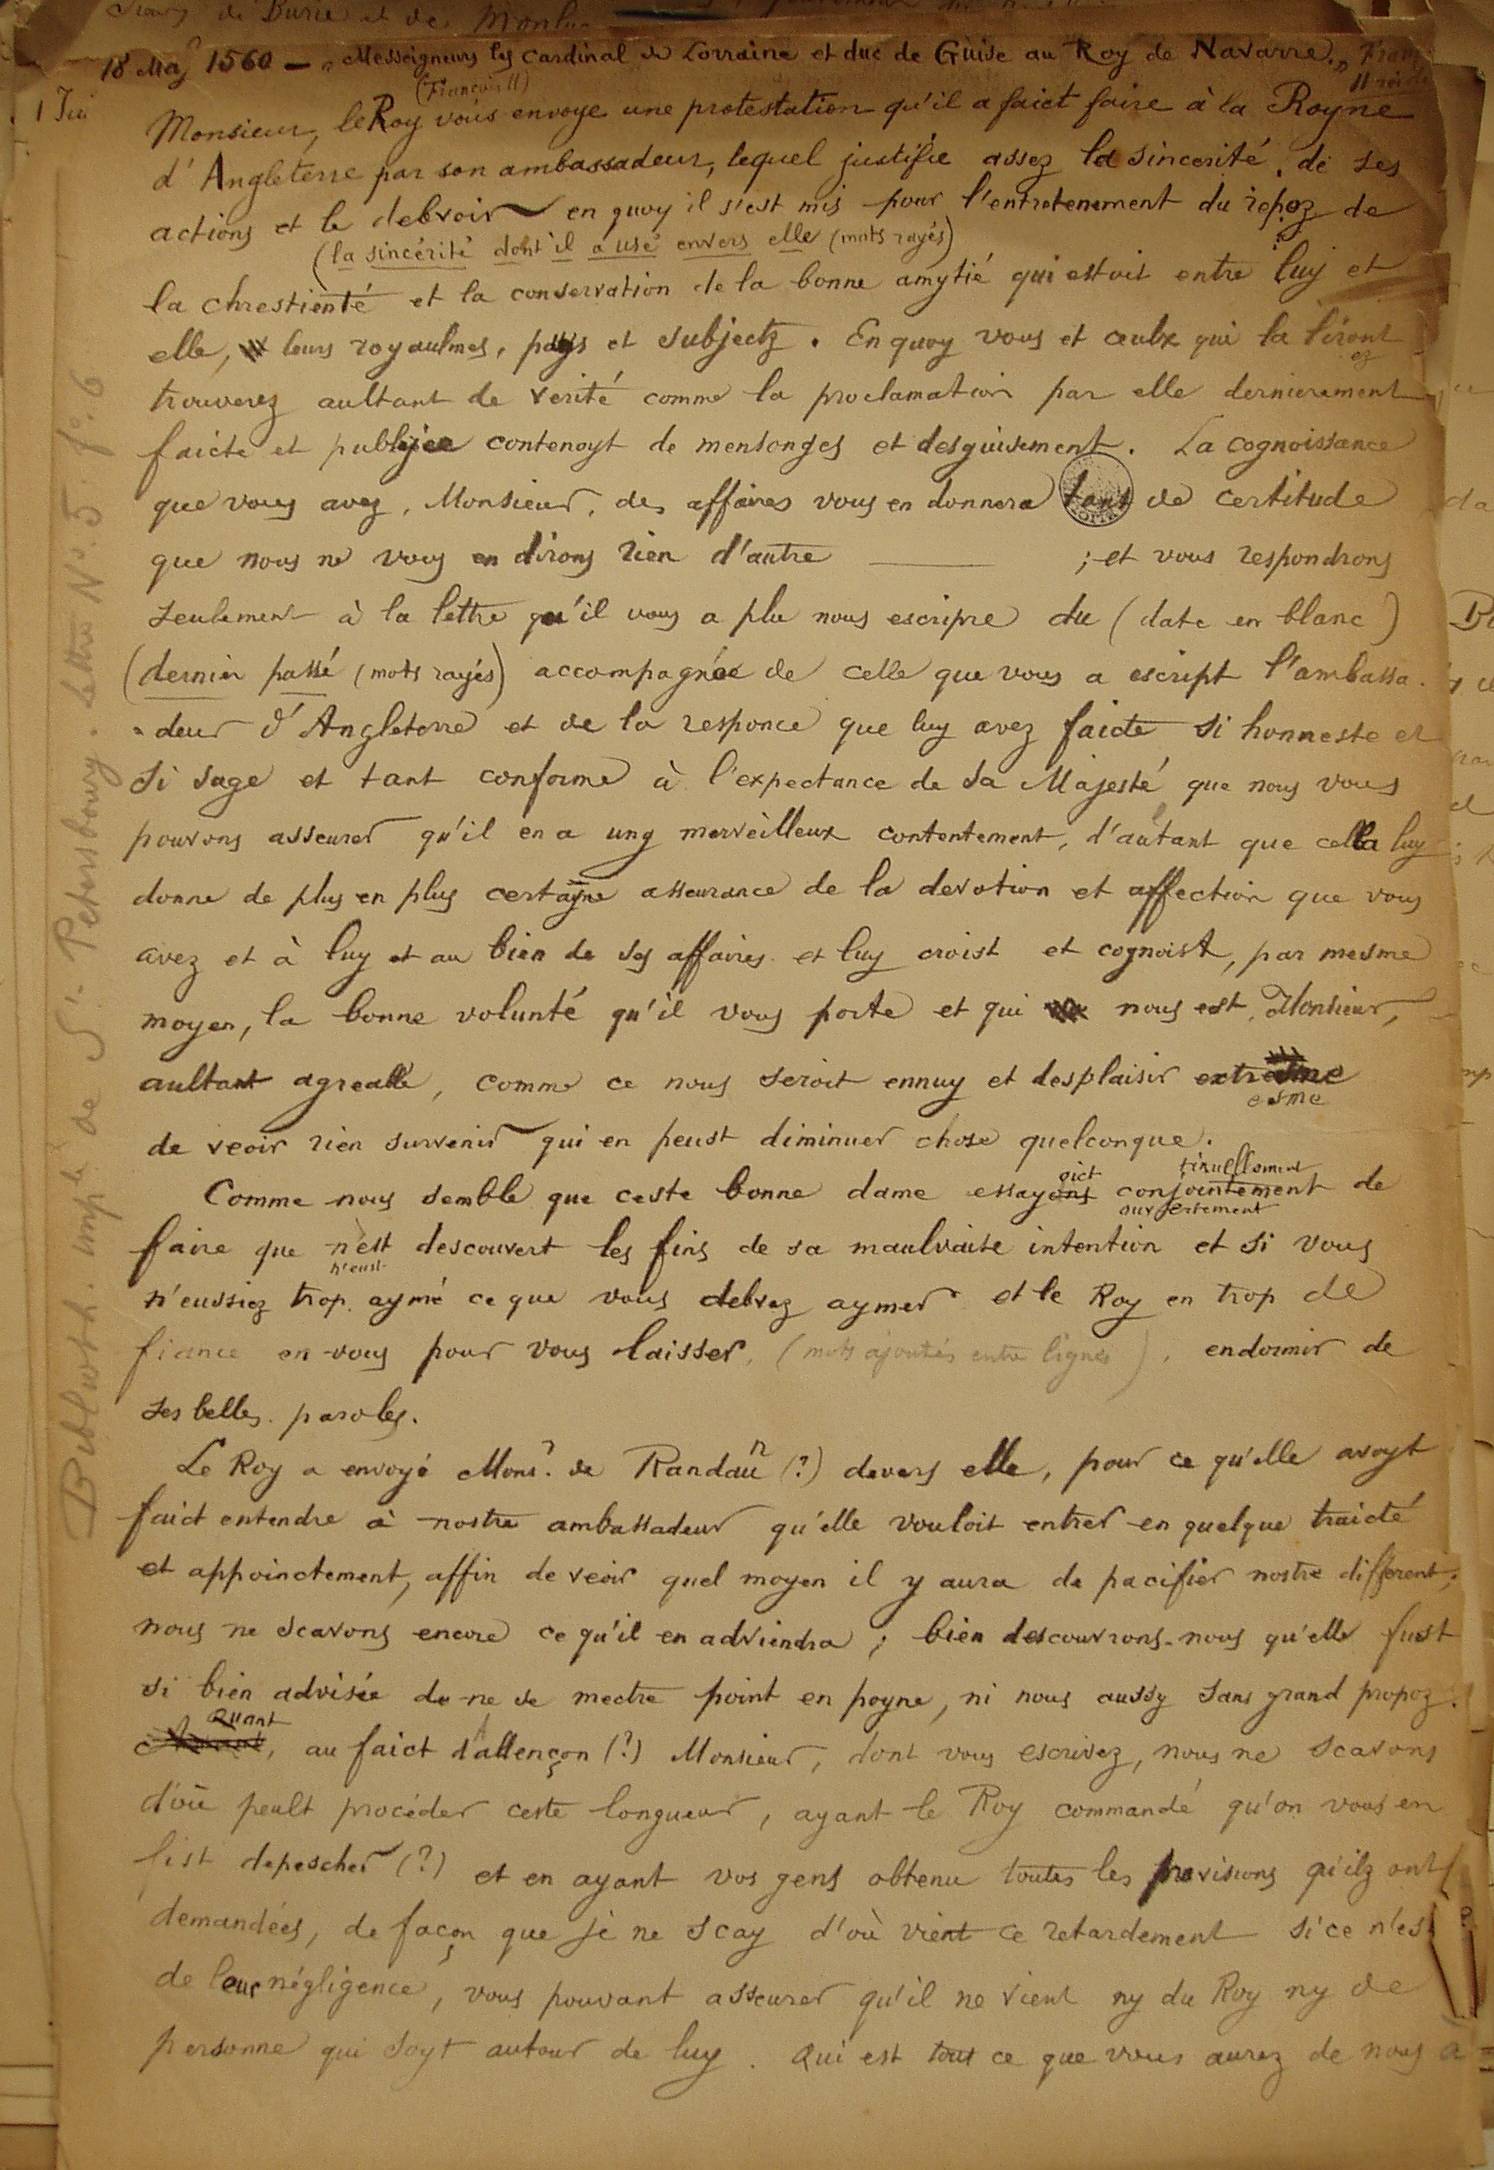 de Burie et de Monluc
18 May 1560 — "Messeigneurs les Cardinal de Lorraine et duc de Guise au Roy de Navarre."
(François II)
Monsieur, le Roy vous envoye une protestation qu'il a faict faire à la Royne
d'Angleterre par son ambassadeur, lequel justifie assez la sincerité de ses
actions et le debvoir en quoy il s'est mis pour l'entretenement du repoz de
(la sincérité dont il a usé envers elle (mots rayés)
la chrestienté et la conservation de la bonne amytié qui estoit entre luy et
elle, leurs royaulmes, pays et subjectz. En quoy vous et ceulx qui la liront
ez
trouverez aultant de verité comme la proclamation par elle dernierement
faicte et publiée contenoyt de mensonges et desguisement. La cognoissance
que vous avez, Monsieur, des affaires vous en donnera tant de certitude
que nous ne vous en dirons rien d'autre ; et vous respondrons
seulement à la lettre qu'il vous a plu nous escripre du (date en blanc)
(dernier passé (mots rayés) accompagnée de celle que vous a escript l'ambassa-
-deur d'Angleterre et de la responce que luy avez faicte si honneste et
si sage et tant conforme à l'expectance de sa Majesté que nous vous
pouvons asseurer qu'il en a ung merveilleux contentement, d'autant que cella luy
donne de plus en plus certayne asseurance de la devotion et affection que vous
avez et à luy et au bien de ses affaires et luy croist et cognoist, par mesme
moyen, la bonne volunté qu'il vous porte et qui nous est, Monsieur,
aultant agreable, comme ce nous seroit ennuy et desplaisir extresme
esme
de veoir rien survenir qui en peust diminuer chose quelconque.
oict tinuellement
Comme nous semble que ceste bonne dame essayons conjointement de
ouvertement
faire que n'est descouvert les fins de sa maulvaise intention et si vous
n'eust
n'eussiez trop aymé ce que vous debvez aymer et le Roy en trop de
fiance en vous pour vous laisser, (mots ajoutés entre lignes), endormir de
ses belles paroles.
Le Roy a envoyé Monsr. de Randau (?) devers elle, pour ce qu'elle avoyt
n
faict entendre à nostre ambassadeur qu'elle vouloit entrer en quelque traicté
et appoinctement, affin de veoir quel moyen il y aura de pacifier nostre different;
nous ne scavons encore ce qu'il en adviendra; bien descouvrons-nous qu'elle fust
si bien advisée de ne se mectre point en peyne, ni nous aussy sans grand propoz.
Quant
au faict d'Allençon (?) Monsieur, dont vous escrivez, nous ne scavons
d'où peult procéder ceste longueur, ayant le Roy commandé qu'on vous en
fist depescher (?) et en ayant vos gens obtenu toutes les provisions qu'ilz ont
demandées, de façon que je ne scay d'où vient ce retardement si ce n'est
de leur négligence, vous pouvant asseurer qu'il ne vient ny du Roy ny de
personne qui soyt autour de luy. Qui est tout ce que vous aurez de nous à
Biblioth. imple de St. Petersbourg. lettre No. 5. fo. 6